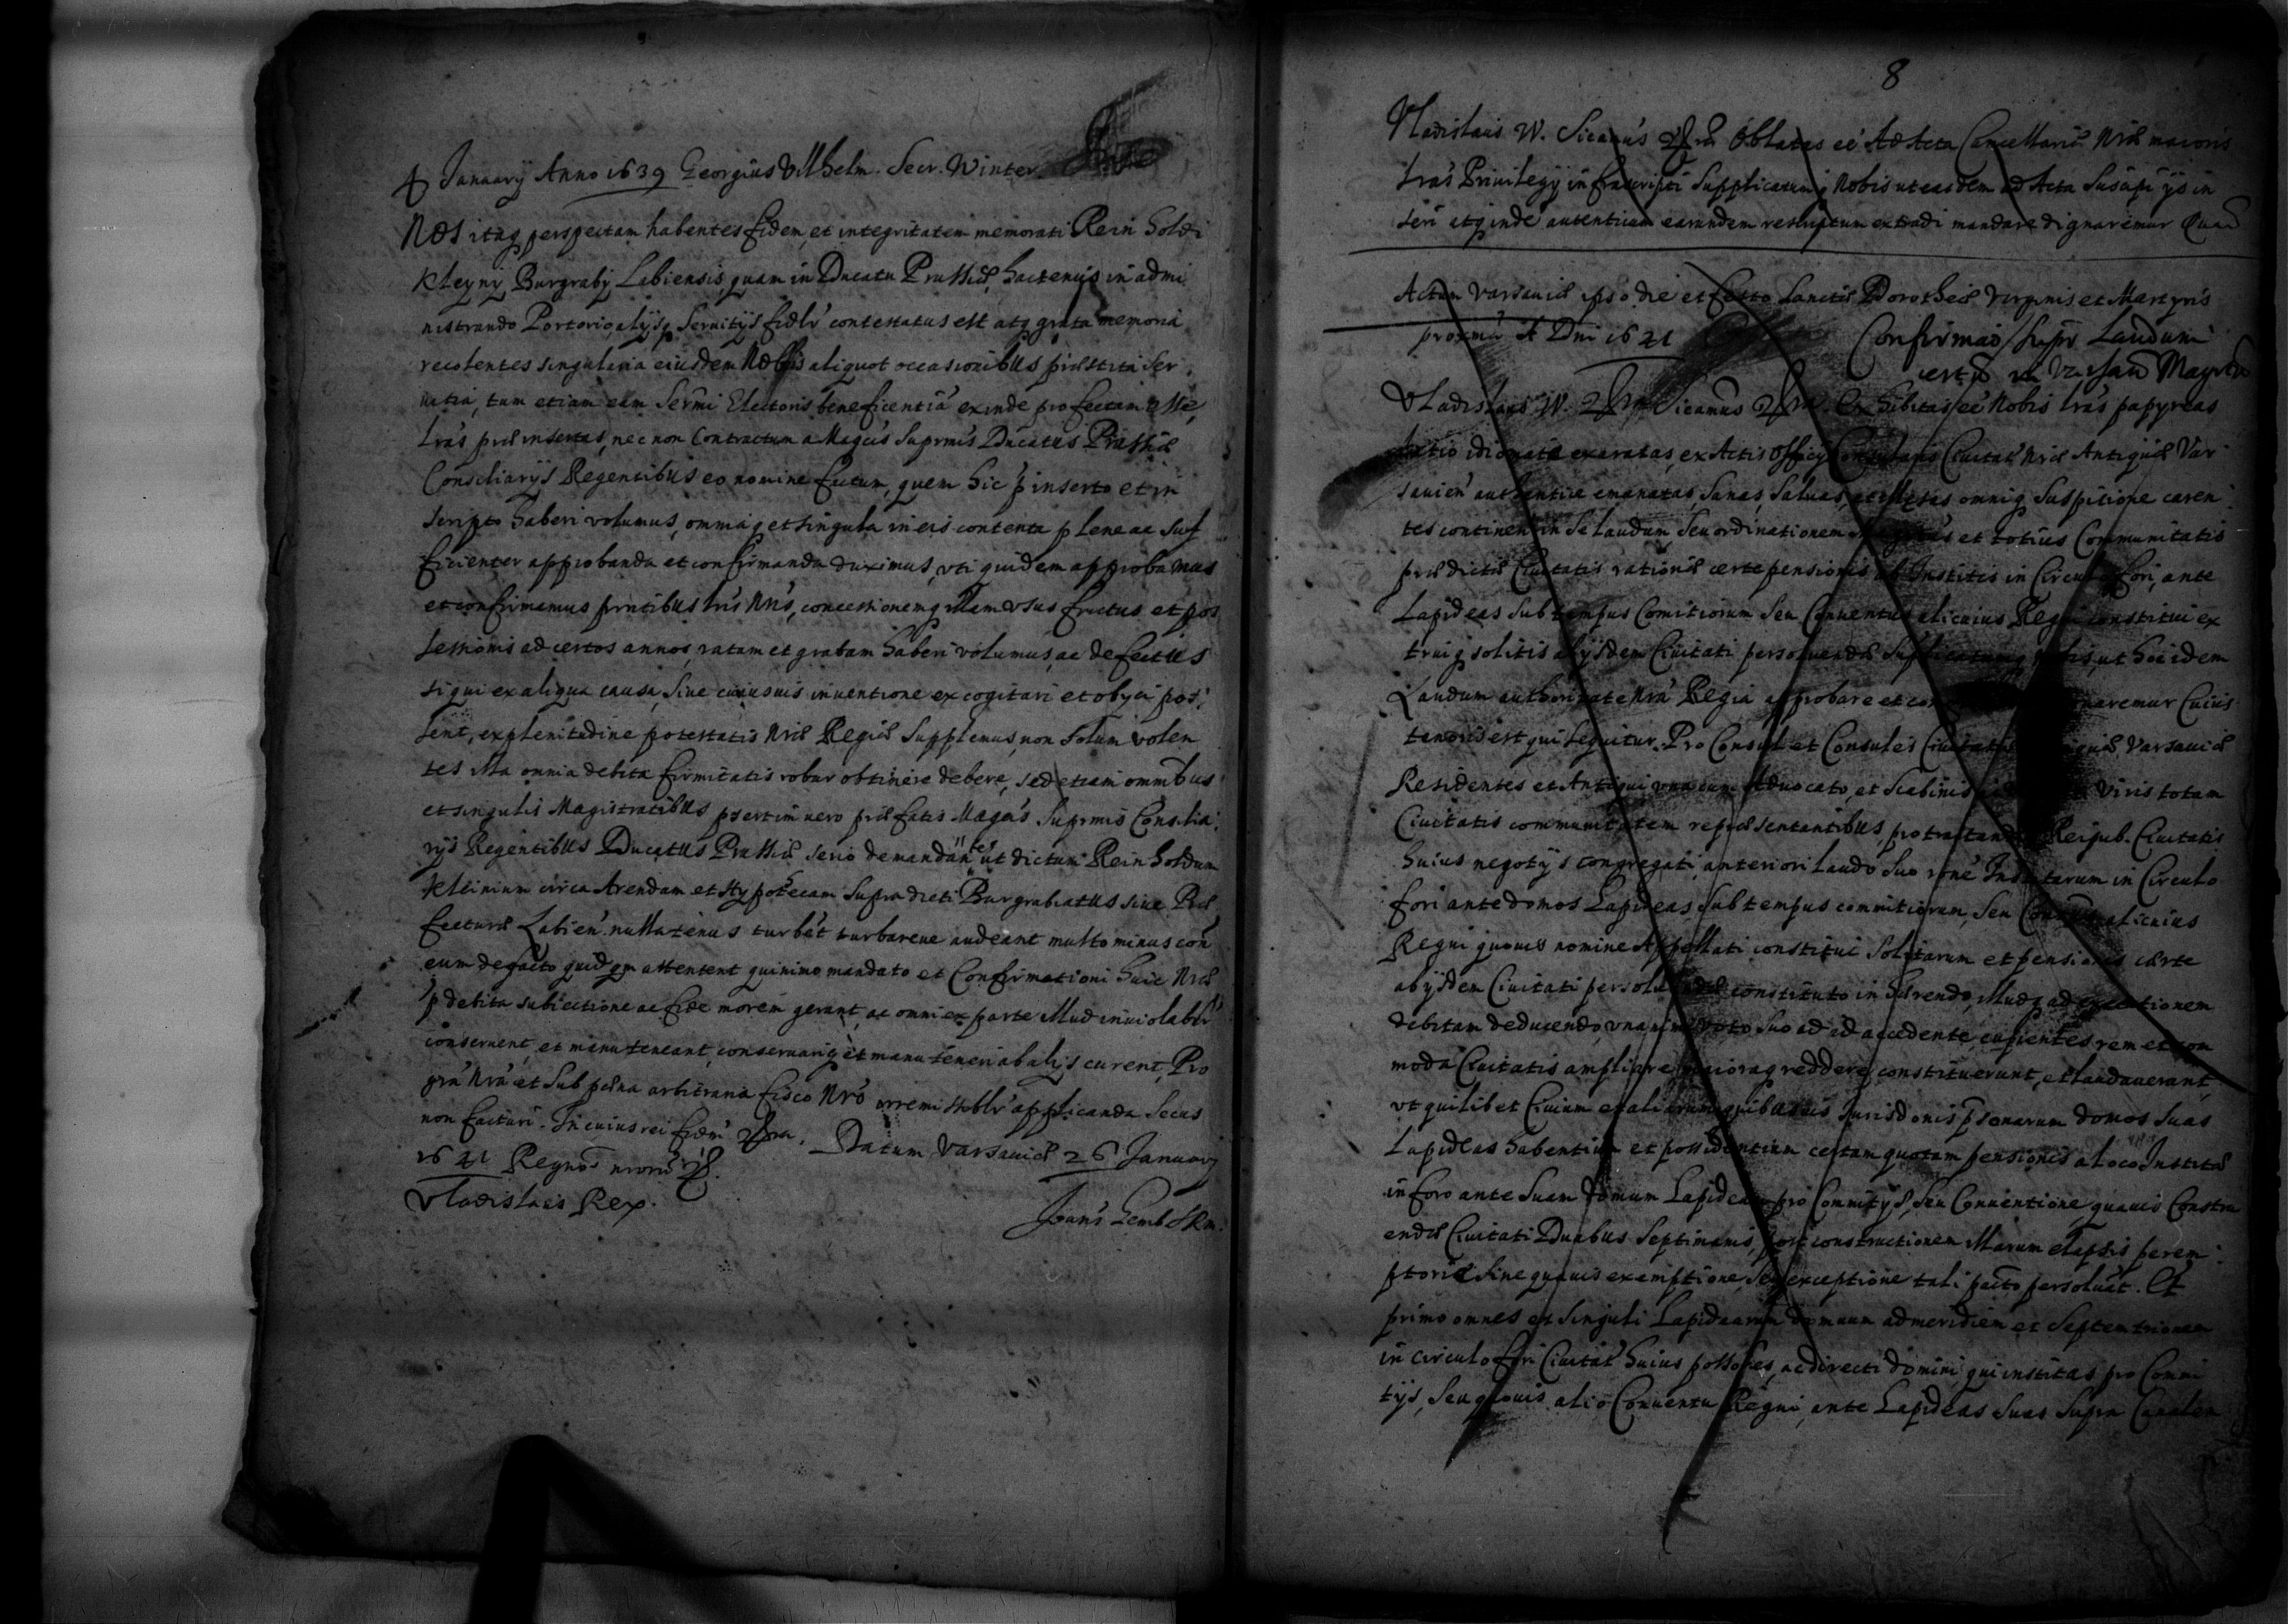 4 January Anno 1639 Georgius Vilhelm. Secr. Winter
Nos itaq perspectam habentes fidem et integritatem memorati Rein Holdi
Kleyny Burgraby Labiensis, quam in Ducatu Prussiæ, hactenus in admi
nistrando Portorio alijsq Seruitys fidlr contestatus est atq grata memoria
recolentes singularia eiusdem Nobis aliquot occasionibus præstita Ser
uitia, tum etiam eam Sermi Electoris beneficentiã exinde profectam esse,
Lrãs præinsertas, nec non Contractum a Magcis Suprmis Ducatus Prussiæ
Consiliarys Regentibus eo nomine factum, quem hic p inserto et in
scripto haberi volumus, omniaq et singula in eis contenta plene ac suf
ficienter approbanda et confirmanda duximus, vti quidem approbamus
et confirmamus prntibus lris Nris, concessionemq illam vsus fructus et pos
sessionis ad certos annos, ratam et gratam haberi volumus, ac defectus
si qui ex aliqua causa, siue cuiusuis inuentione excogitari et obyci pos
sent, explenitudine potestatis Nræ Regiæ Supplemus, non solum volen
tes illa omnia debita firmitatis robur obtinere debere, sed etiam omnibus
et singulis Magistratibus psertim uero præfatis Magcis Suprmis Consilia
rys Regentibus Ducatus Prussiæ serio demandan ut dictum Rein holdum
Kleinium circa Arendam et Hypotecam Supradicti Burgrabiatus siue Præ
fecturæ Labien nullatenus turbet turbareue audeant multo minus con
eum defacto quidqm attentent quinimo mandato et Confirmationi huic Nræ
p debita subiectione ac fide morem gerant, ac omni ex parte illud inuiolablr
conseruent, et manuteneant, conseruariq et manuteneri ab alijs curent, Pro
grã Nrã et sub pæna arbitraria fisco Nro irremissiblr applicanda Secus
non facturi. In cuius rei fidem Datum Varsauiæ 26 January
1641 Regnor nrorum
Vladislaus Rex.
8
Vladislaus IV. Sicanus Oblatas eê Ad Acta Cancellariæ Nræ maioris
Lrãs Priuilegij infrascripti Supplicatumq Nobis ut easdem ad Acta suscipi ijs in
seri etq inde autenticum earundem rescriptum extradi mandare dignaremur
Actum Varsauiæ ipso die et festo Sanctæ Dorotheæ Virginis et Martyris
proxma A Dni 1641
Confirmaõ supr Laudum
Vladislaus IV. Sicanus Exhibitas eê Nobis Lrãs papyreas
Latio idiomate exaratas, ex Actis Officy Consularis Ciuitat Nræ Antiquæ Var
sauien authentice emanatas, Sanas, Saluas, et illesas omniq Suspitione caren
tes continen in Se Laudum, Seu ordinationem et totius Communitatis
prædictæ Ciuitatis rationæ certe pensionis ab Institis in Circulo fori, ante
Lapideas Sub tempus Comitiorum Seu Conuentus alicuius Regni constitui ex
truiq solitis alysdem Ciuitati persoluendæ Supplicatumq Nobis, ut hoc idem
Laudum authoritate Nrã Regia approbare et con naremur Cuius
tenoris est qui sequitur. Pro Consul et Consules Ciuitatis Varsauiæ
Residentes et Antiqui, vna cum Aduocato, et Scabinis Viris totam
Ciuitatis communitatem repræsentantibus, pro tractandis Reipub. Ciuitatis
huius negotijs congregati, anteriori Laudo Suo rõne Institarum in Circulo
fori ante domos Lapideas, Sub tempus commitiorum, Seu alicuius
Regni quouis nomine Appellati constitui Solitarum et pensionis certe
abysdem Ciuitati persoluendæ constituto in hærendo, illudq ad executionem
debitam deducendo, vnanimi voto Suo ad id accedente, cupientes rem et com
moda Ciuitatis ampliare maioraq reddere, constituerunt, et laudauerunt,
vt quilibet Ciuium et aliarum quibusuis Jurisdonis psonarum domos Suas
Lapideas habentium et possidentium certam quotam pensionis a loco Institæ
in foro ante Suam domum Lapideam pro Commitys, Seu Conuentione quauis Constru
endæ Ciuitati Duabus Septimanis, post constructionem illarum elapsis perem
ptorie Sine quauis exemptione, Seu exceptione tali pacto persoluat. Et
primo omnes et Singuli Lapidearum domuum ad meridiem et Septentrionem
in circulo fori Ciuitat huius possores, ac directi domini, qui institas pro Commi
tys, Seu quouis alio Conuentu Regni, ante Lapideas Suas Supra Canalem